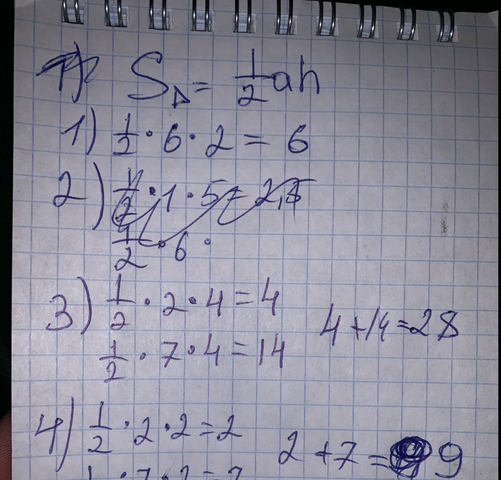 1) S△ = 1/2 ah
1) 1/2 · 6 · 2 = 6
2) 1/2 · 1 · 5 = 2,5
1/2 · 6 ·
3) 1/2 · 2 · 4 = 4
1/2 · 7 · 4 = 14 4 + 14 = 28
4) 1/2 · 2 · 2 = 2
1/2 · 7 · 2 = 7 2 + 7 = 9